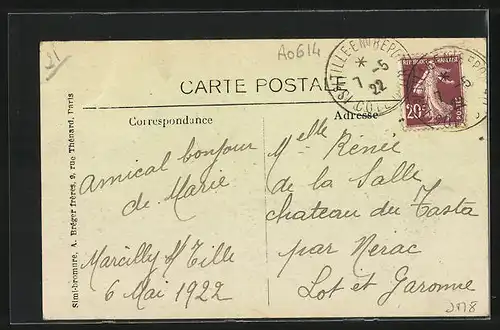 21
A0614
CARTE POSTALE
*
7 -5
22
20c
POSTES
Correspondance
Adresse
Amical bonjour
de Marie
Marcilly s/ Tille
6 Mai 1922
Melle Rénée
de la Salle
chateau du Tasta
par Nérac
Lot et Garonne
Simi-bromure, A. Bréger frères, 9, rue Thénard, Paris
2178